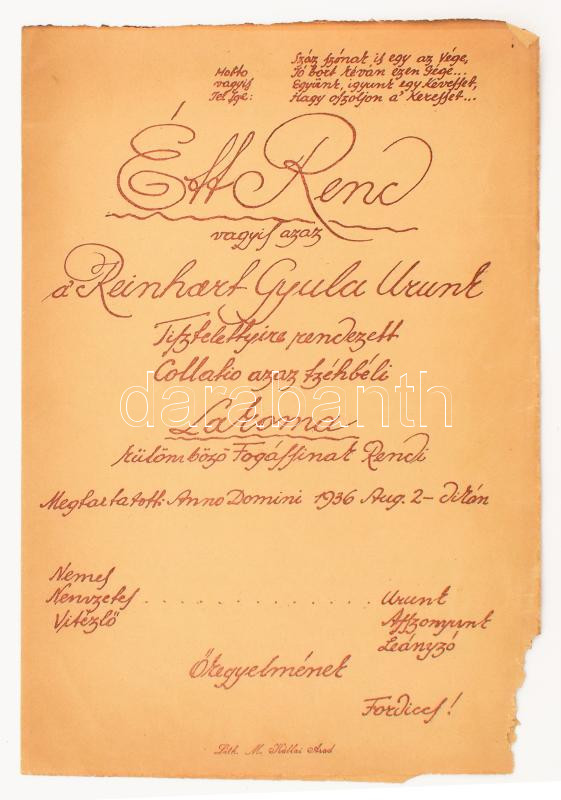 Száz szónak is egy az Vége,
Motto Jó bort kéván ezen Gégé...
vagyis Együnk, igyunk egy Kéveſſet,
Tel Ige: Hagy oſzoljon a' Kereſſet...
Étt Rend
vagyis azaz
a' Reinhart Gyula Urunk
Tiſztelettyire rendezett
Collatio azaz tzéhbéli
Lakoma
külömböző Fogáſſinak Rendi
Megtartatott: Anno Domini 1936 Aug. 2-dikán
Nemes
Nemzetes . . . . . . . . . . . . . . Urunk
Vitézlő Aſſzonyunk
Leányzó
Őkegyelmének
Fordiccs!
Lith. M. Kállai Arad
darabanth